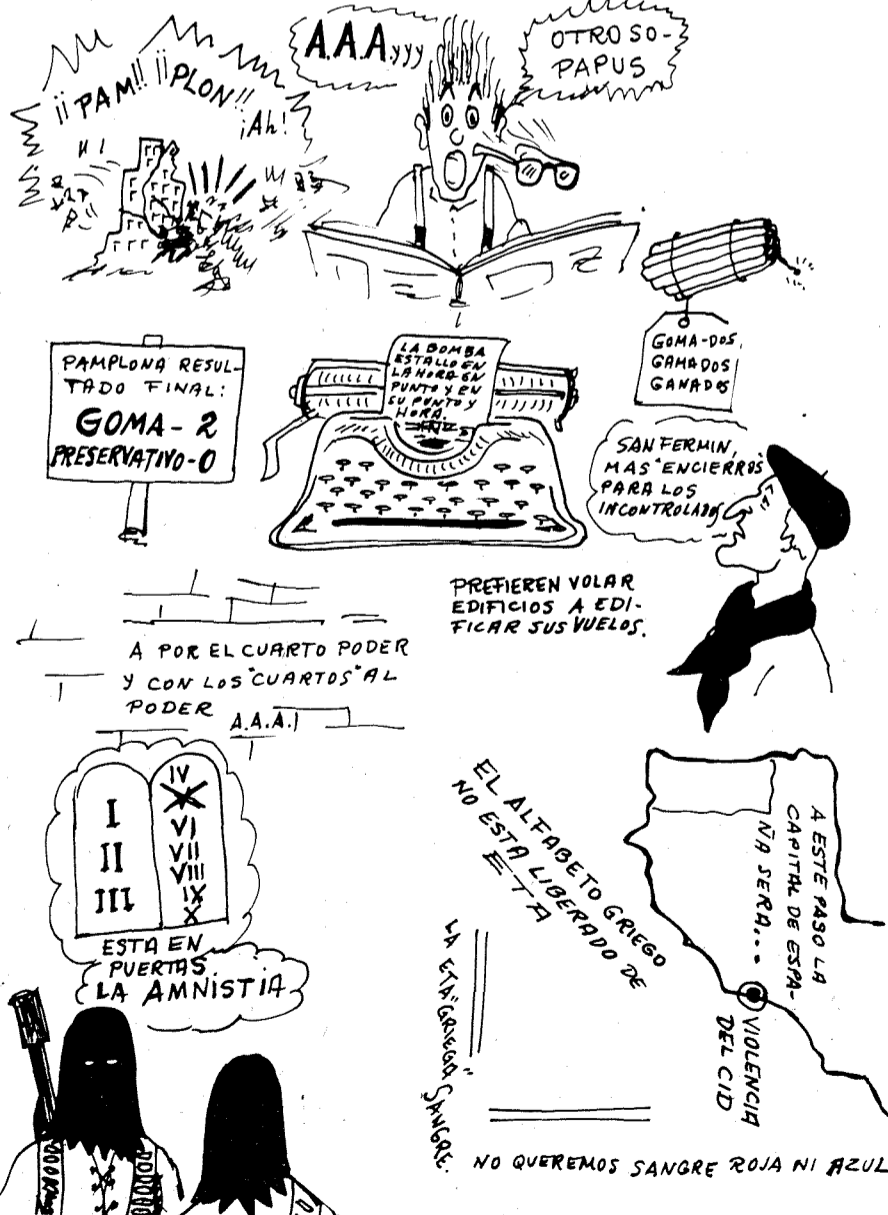 ¡¡PAM!! ¡¡PLON!!
¡Ah!
A.A.A.yyy
OTRO SO-
PAPUS
PAMPLONA RESUL-
TADO FINAL:
GOMA-2
PRESERVATIVO-0
LA BOMBA
ESTALLO EN
LA HORA EN
PUNTO Y EN
SU PUNTO Y
HORA.
GOMA-DOS,
GAMADOS
GANADOS
SAN FERMIN,
MAS "ENCIERROS"
PARA LOS
INCONTROLADOS
PREFIEREN VOLAR
EDIFICIOS A EDI-
FICAR SUS VUELOS.
A POR EL CUARTO PODER
Y CON LOS "CUARTOS" AL
PODER
A.A.A.
I
II
III
IV
VI
VII
VIII
IX
X
ESTA EN
PUERTAS.
LA AMNISTIA
EL ALFABETO GRIEGO
NO ESTA LIBERADO DE
ETA
A ESTE PASO LA
CAPITAL DE ESPA-
ÑA SERA...
VIOLENCIA
DEL CID
LA ETA "GRIEGA" SANGRE.
NO QUEREMOS SANGRE ROJA NI AZUL